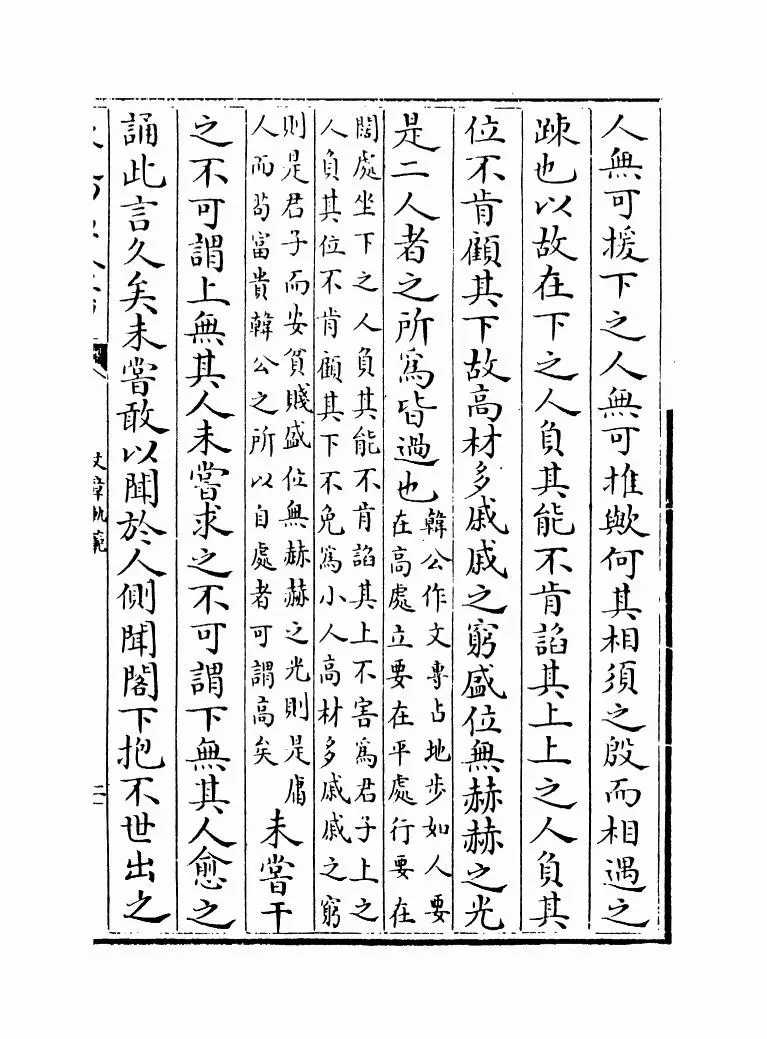 人無可援下之人無可推歟何其相須之殷而相遇之
踈也以故在下之人負其能不肯諂其上上之人負其
位不肯顧其下故高材多戚戚之窮盛位無赫赫之光
是二人者之所為皆過也韓公作文專占地步如人要
在高處立要在平處行要在
闊處坐下之人負其能不肯諂其上不害為君子上之
人負其位不肯顧其下不免為小人高材多戚戚之窮
則是君子而安貧賤盛位無赫赫之光則是庸
人而茍富貴韓公之所以自處者可謂高矣未嘗干
之不可謂上無其人未嘗求之不可謂下無其人愈之
誦此言久矣未嘗敢以聞於人側聞閣下抱不世出之
文章軌範
二